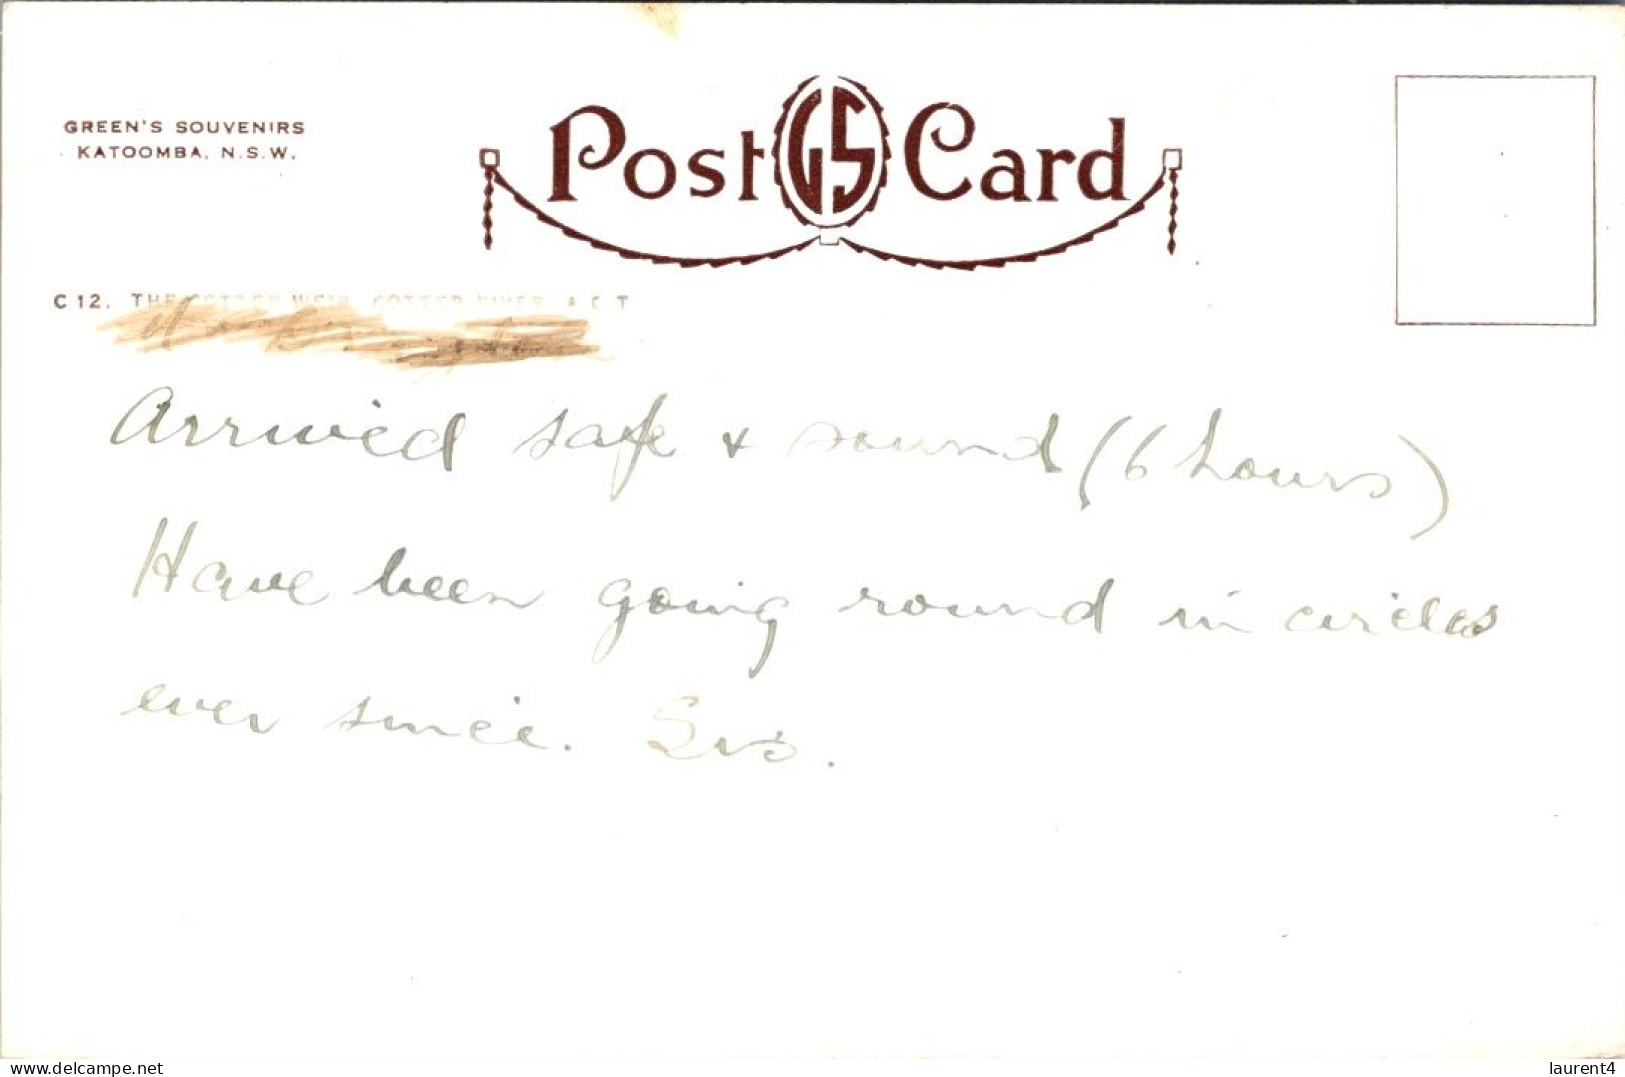 GREEN'S SOUVENIRS
KATOOMBA, N.S.W.
Post GS Card
C 12. THE COTTER WEIR, COTTER RIVER, A.C.T
Arrived safe + sound (6 hours)
Have been going round in circles
ever since. Sis.
www.delcampe.net
laurent4